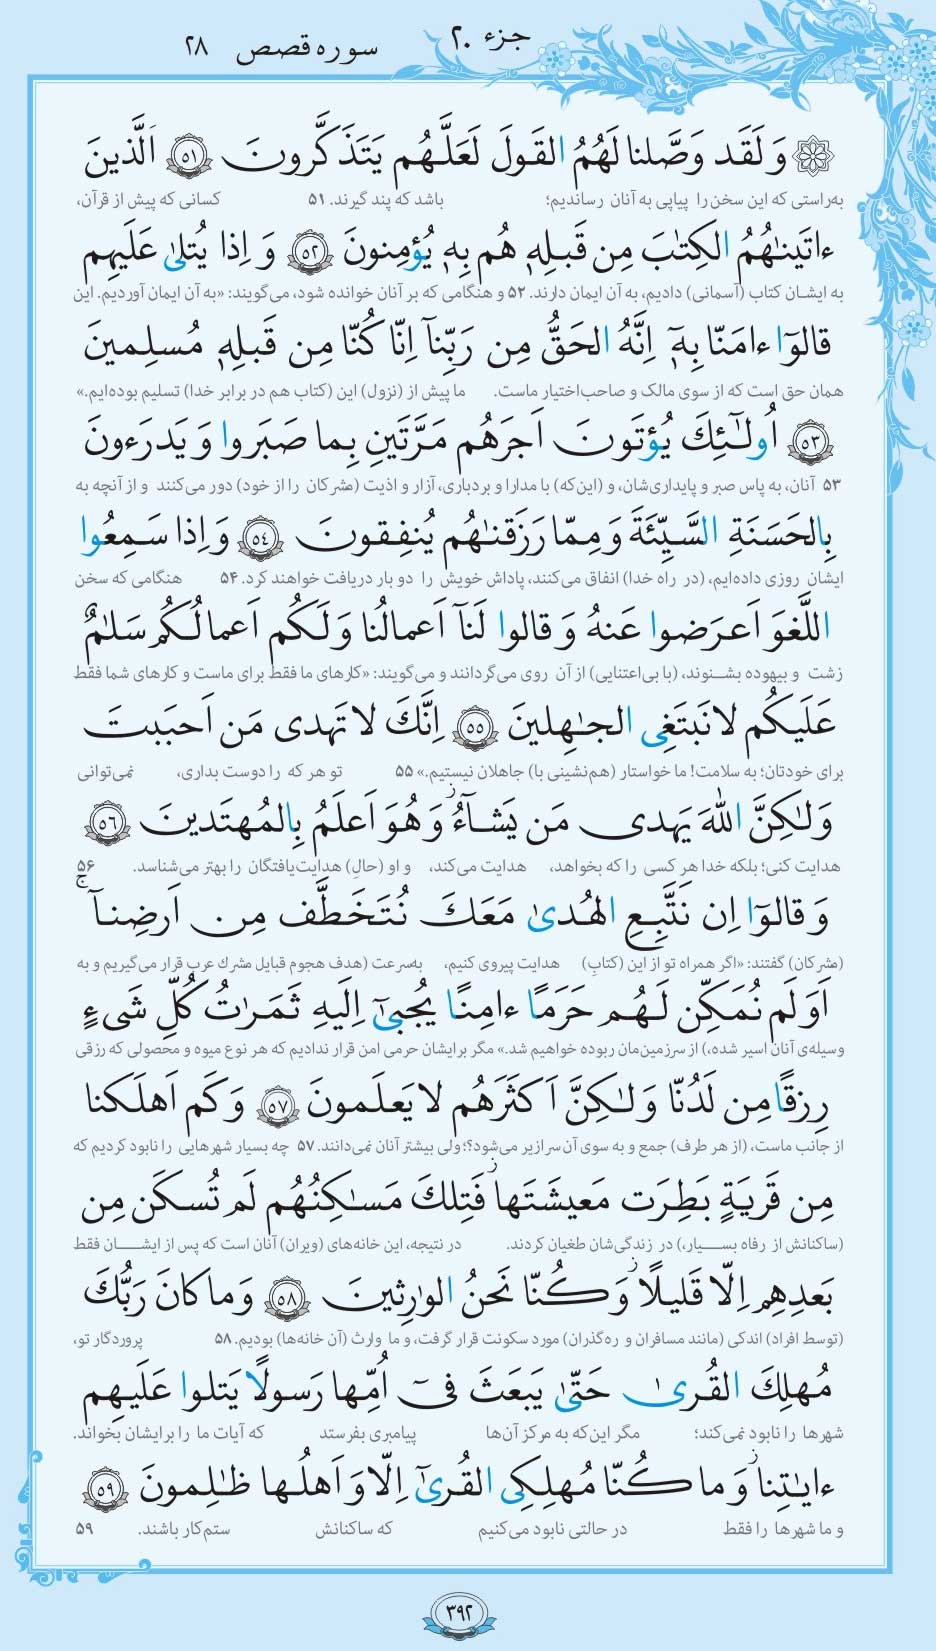 جزء ۲۰
سوره قصص ۲۸
وَ لَقَد وَصَّلنا لَهُمُ القَولَ لَعَلَّهُم يَتَذَكَّرونَ ﴿٥١﴾ اَلَّذينَ
به‌راستی که این سخن را پیاپی به آنان رساندیم؛ باشد که پند گیرند. ۵۱ کسانی که پیش از قرآن،
ءاتَينٰهُمُ الكِتٰبَ مِن قَبلِهٖ هُم بِهٖ يُؤمِنونَ ﴿٥٢﴾ وَ اِذا يُتلىٰ عَلَيهِم
به ایشان کتاب (آسمانی) دادیم، به آن ایمان دارند. ۵۲ و هنگامی که بر آنان خوانده شود، می‌گویند: «به آن ایمان آوردیم. این
قالوٓا ءامَنّا بِهٖٓ اِنَّهُ الحَقُّ مِن رَبِّنآ اِنّا كُنّا مِن قَبلِهٖ مُسلِمينَ
همان حق است که از سوی مالک و صاحب‌اختیار ماست. ما پیش از (نزول) این (کتاب هم در برابر خدا) تسلیم بوده‌ایم.»
﴿٥٣﴾ اُولٰٓئِكَ يُؤتَونَ اَجرَهُم مَرَّتَينِ بِما صَبَروا وَ يَدرَءونَ
۵۳ آنان، به پاس صبر و پایداری‌شان، و (این‌که) با مدارا و بردباری، آزار و اذیت (مشرکان را از خود) دور می‌کنند و از آنچه به
بِالحَسَنَةِ السَّيِّئَةَ وَ مِمّا رَزَقنٰهُم يُنفِقونَ ﴿٥٤﴾ وَ اِذا سَمِعُوا
ایشان روزی داده‌ایم، (در راه خدا) انفاق می‌کنند، پاداش خویش را دو بار دریافت خواهند کرد. ۵۴ هنگامی که سخن
اللَّغوَ اَعرَضوا عَنهُ وَ قالوا لَنآ اَعمالُنا وَ لَكُم اَعمالُكُم سَلٰمٌ
زشت و بیهوده بشنوند، (با بی‌اعتنایی) از آن روی می‌گردانند و می‌گویند: «کارهای ما فقط برای ماست و کارهای شما فقط
عَلَيكُم لا نَبتَغِى الجٰهِلينَ ﴿٥٥﴾ اِنَّكَ لا تَهدى مَن اَحبَبتَ
برای خودتان؛ به سلامت! ما خواستار (هم‌نشینی با) جاهلان نیستیم.» ۵۵ تو هر که را دوست بداری، نمی‌توانی
وَ لٰكِنَّ اللّٰهَ يَهدى مَن يَشآءُ ۚ وَ هُوَ اَعلَمُ بِالمُهتَدينَ ﴿٥٦﴾
هدایت کنی؛ بلکه خدا هر کسی را که بخواهد، هدایت می‌کند، و او (حالِ) هدایت‌یافتگان را بهتر می‌شناسد. ۵۶
وَ قالوٓا اِن نَتَّبِعِ الهُدىٰ مَعَكَ نُتَخَطَّف مِن اَرضِنآ ۚ
(مشرکان) گفتند: «اگر همراه تو از این (کتابِ) هدایت پیروی کنیم، به‌سرعت (هدف هجوم قبایل مشرک عرب قرار می‌گیریم و به
اَوَ لَم نُمَكِّن لَهُم حَرَمًا ءامِنًا يُجبىٰٓ اِلَيهِ ثَمَرٰتُ كُلِّ شَىءٍ
وسیله‌ی آنان اسیر شده،) از سرزمین‌مان ربوده خواهیم شد.» مگر برایشان حرمی امن قرار ندادیم که هر نوع میوه و محصولی که رزقی
رِزقًا مِن لَدُنّا وَ لٰكِنَّ اَكثَرَهُم لا يَعلَمونَ ﴿٥٧﴾ وَ كَم اَهلَكنا
از جانب ماست، (از هر طرف) جمع و به سوی آن سرازیر می‌شود؟؛ ولی بیشتر آنان نمی‌دانند. ۵۷ چه بسیار شهرهایی را نابود کردیم که
مِن قَريَةٍ بَطِرَت مَعيشَتَها ۚ فَتِلكَ مَسٰكِنُهُم لَم تُسكَن مِن
(ساکنانش از رفاه بسیار،) در زندگی‌شان طغیان کردند. در نتیجه، این خانه‌های (ویران) آنان است که پس از ایشان فقط
بَعدِهِم اِلّا قَليلًا ۚ وَ كُنّا نَحنُ الوارِثينَ ﴿٥٨﴾ وَ ما كانَ رَبُّكَ
(توسط افراد) اندکی (مانند مسافران و ره‌گذران) مورد سکونت قرار گرفت، و ما وارث (آن خانه‌ها) بودیم. ۵۸ پروردگار تو،
مُهلِكَ القُرىٰ حَتّىٰ يَبعَثَ فىٓ اُمِّها رَسولًا يَتلوا عَلَيهِم
شهرها را نابود نمی‌کند؛ مگر این‌که به مرکز آن‌ها پیامبری بفرستد که آیات ما را برایشان بخواند.
ءايٰتِنا ۚ وَ ما كُنّا مُهلِكِى القُرىٰٓ اِلّا وَ اَهلُها ظٰلِمونَ ﴿٥٩﴾
و ما شهرها را فقط در حالتی نابود می‌کنیم که ساکنانش ستم‌کار باشند. ۵۹
۳۹۲